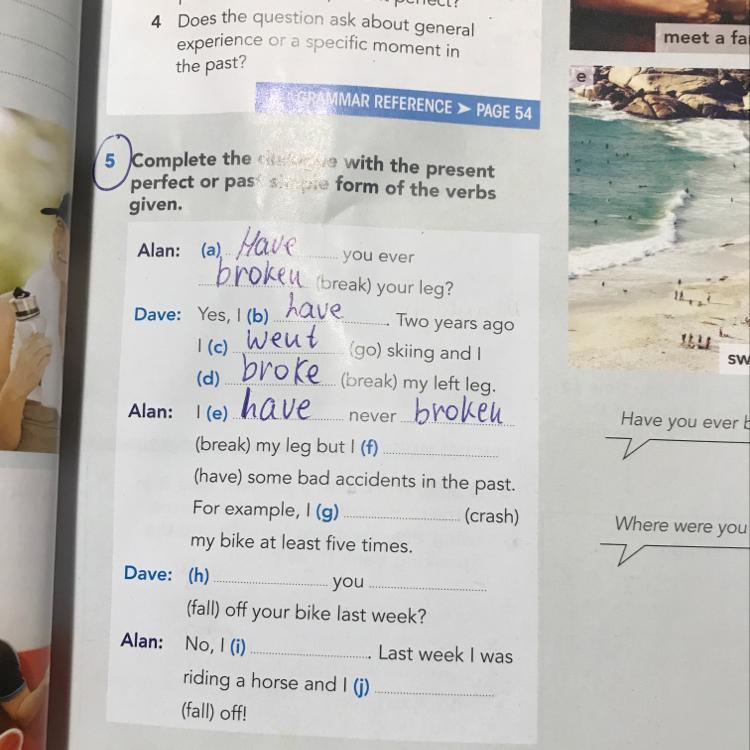 4 Does the question ask about general
experience or a specific moment in
the past?
GRAMMAR REFERENCE ➤ PAGE 54
5 Complete the with the present
perfect or past simple form of the verbs
given.
Alan: (a) Have you ever
broken (break) your leg?
Dave: Yes, I (b) have. Two years ago
I (c) went (go) skiing and I
(d) broke (break) my left leg.
Alan: I (e) have never broken
(break) my leg but I (f)
(have) some bad accidents in the past.
For example, I (g) (crash)
my bike at least five times.
Dave: (h) you
(fall) off your bike last week?
Alan: No, I (i) . Last week I was
riding a horse and I (j)
(fall) off!
meet a
e
Have you ever
Where were you